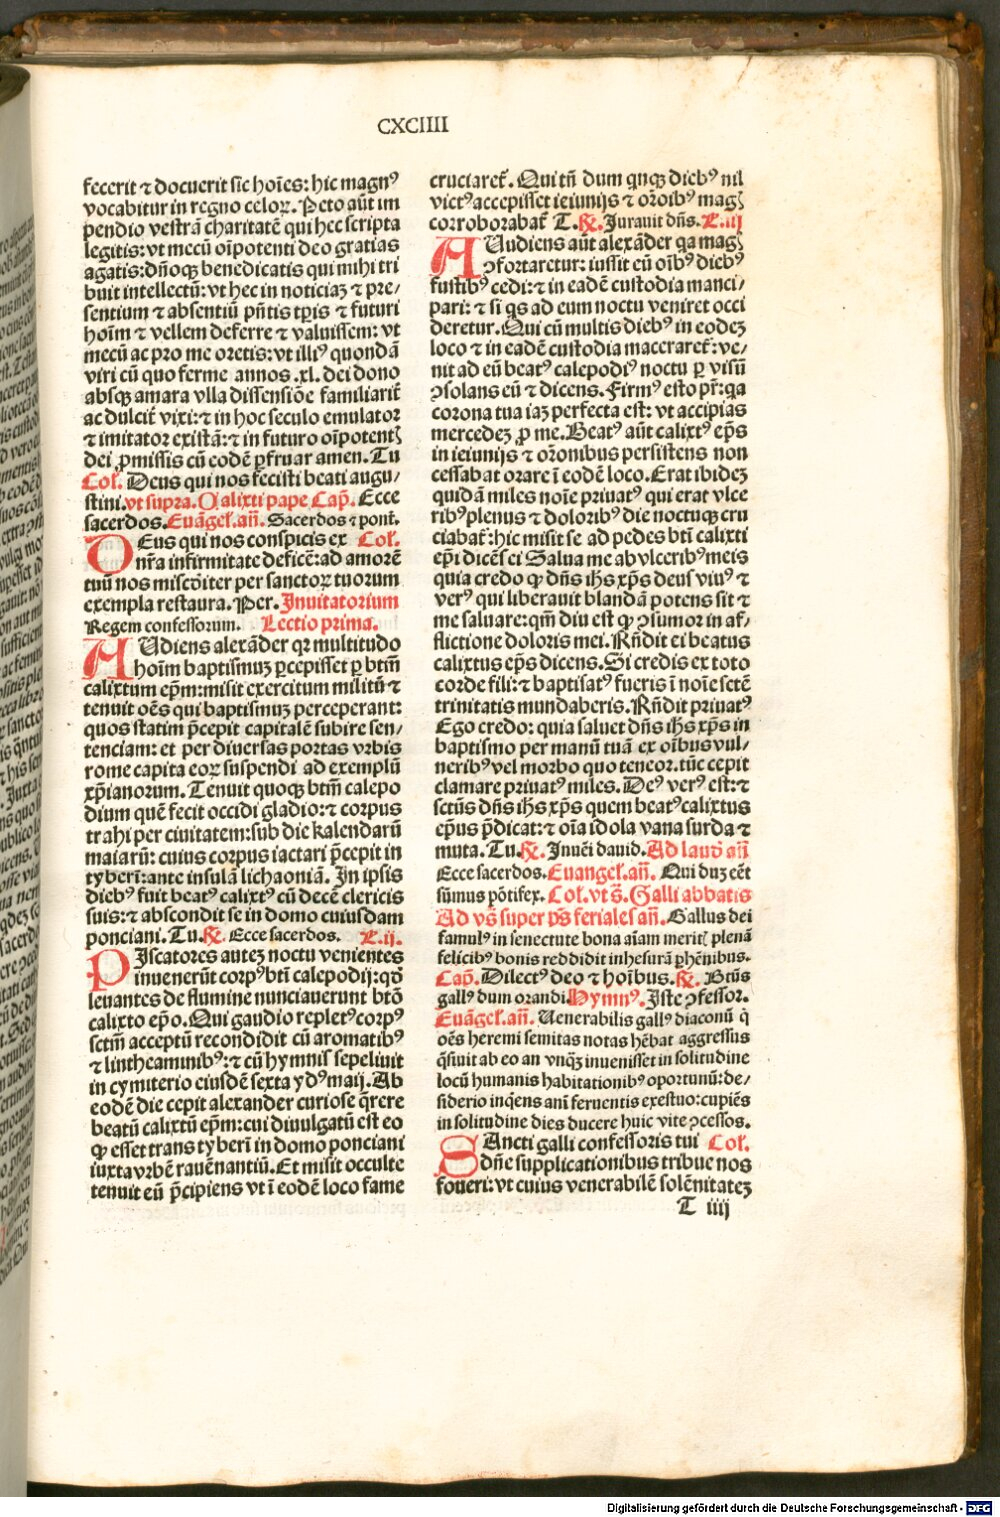 CXCIIII
fecerit ⁊ docuerit sic hoīes: hic magnꝰ
vocabitur in regno celoꝝ. Peto aūt im
pendio vestrā charitatē qui hec scripta
legitis: vt mecū oīpotenti deo gratias
agatis: dn̄oqꝫ benedicatis qui mihi tri
buit intellectū: vt hec in noticiaꝫ ⁊ pre⸗
sentium ⁊ absentiū pn̄tis tp̄is ⁊ futuri
hoīm ⁊ vellem deferre ⁊ valuissem: vt
mecū ac pro me oretis: vt illiꝰ quondā
viri cū quo ferme annos .xl. dei dono
absqꝫ amara vlla dissensiōe familiarit̄
ac dulcit̄ vixi: ⁊ in hoc seculo emulator
⁊ imitator existā: ⁊ in futuro oīpotentꝭ
dei ꝓmissis cū eodē ꝑfruar amen. Tu
Col̄. Deus qui nos fecisti beati augu⸗
stini. vt supra. Calixti pape Cap̄. Ecce
sacerdos. Euāgel̄. an̄. Sacerdos ⁊ pont̄.
DEus qui nos conspicis ex Col̄.
nr̄a infirmitate deficē: ad amorē
tuū nos miscōiter per sanctoꝝ tuorum
exempla restaura. Per. Inuitatorium
Regem confessorum. Lectio prima.
AUdiens alexāder qꝛ multitudo
hoīm baptismuꝫ ꝑcepisset ꝑ btm̄
calixtum ep̄m: misit exercitum militū ⁊
tenuit oēs qui baptismuꝫ perceperant:
quos statim p̄cepit capitalē subire sen⸗
tenciam: et per diuersas portas vrbis
rome capita eoꝝ suspendi ad exemplū
xp̄ianorum. Tenuit quoqꝫ btm̄ calepo
dium quē fecit occidi gladio: ⁊ corpus
trahi per ciuitatem: sub die kalendarū
maiarū: cuius corpus iactari p̄cepit in
tyberī: ante insulā lichaoniā. In ipsis
diebꝰ fuit beatꝰ calixtꝰ cū decē clericis
suis: ⁊ abscondit se in domo cuiusdam
ponciani. Tu. ℟. Ecce sacerdos. L. ij.
PIscatores auteꝫ noctu venientes
inuenerūt corpꝰ btī calepodij: qđ
leuantes de flumine nunciauerunt btō
calixto ep̄o. Qui gaudio repletꝰ corpꝰ
sctm̄ acceptū recondidit cū aromatibꝰ
⁊ lintheaminibꝰ: ⁊ cū hymnis sepeliuit
in cymiterio eiusdē sexta ydꝰ maij. Ab
eodē die cepit alexander curiose q̄rere
beatū calixtū ep̄m: cui diuulgatū est eo
ꝙ esset trans tyberī in domo ponciani
iuxta vrbē rauēnantiū. Et misit occulte
tenuit eū p̄cipiens vt ī eodē loco fame
cruciaret̄. Qui tn̄ dum qnqꝫ diebꝰ nil
victꝰ accepisset ieiunijs ⁊ orōibꝰ magꝭ
corroborabat̄ T. ℟. Jurauit dn̄s. L. iij
AUdiens aūt alexāder qa magꝭ
ꝯfortaretur: iussit eū oībꝰ diebꝰ
fustibꝰ cedi: ⁊ in eadē custodia manci⸗
pari: ⁊ si qs ad eum noctu veniret occi
deretur. Qui cū multis diebꝰ in eodeꝫ
loco ⁊ in eadē custodia maceraret̄: ve⸗
nit ad eū beatꝰ calepodiꝰ noctu ꝑ visū
ꝯsolans eū ⁊ dicens. Firmꝰ esto pr̄: qa
corona tua iaꝫ perfecta est: vt accipias
mercedeꝫ ꝓ me. Beatꝰ aūt calixtꝰ ep̄s
in ieiunijs ⁊ orōnibus persistens non
cessabat orare ī eodē loco. Erat ibideꝫ
quidā miles noīe priuatꝰ qui erat vlce
ribꝰ plenus ⁊ doloribꝰ die noctuqꝫ cru
ciabat̄: hic misit se ad pedes btī calixti
ep̄i dicēs ei Salua me ab vlceribꝰ meis
quia credo ꝙ dn̄s ih̄s xp̄s deus viuꝰ ⁊
verꝰ qui liberauit blandā potens sit ⁊
me saluare: qm̄ diu est ꝙ ꝯsumor in af⸗
flictione doloris mei. Rn̄dit ei beatus
calixtus ep̄s dicens. Si credis ex toto
corde fili: ⁊ baptisatꝰ fueris ī noīe sctē
trinitatis mundaberis. Rn̄dit priuatꝰ
Ego credo: quia saluet dn̄s ih̄s xp̄s in
baptismo per manū tuā ex oībus vul⸗
neribꝰ vel morbo quo teneor. tūc cepit
clamare priuatꝰ miles. Deꝰ verꝰ est: ⁊
sctūs dn̄s ih̄s xp̄s quem beatꝰ calixtus
ep̄us p̄dicat: ⁊ oīa idola vana surda ⁊
muta. Tu. ℟. Inuēi dauid. Ad laud̄ an̄
Ecce sacerdos. Euangel̄. an̄. Qui duꝫ eēt
sūmus pōtifex. Col̄. vt s̄. Galli abbatis
Ad vs̄ super ps̄ feriales an̄. Gallus dei
famulꝰ in senectute bona aīam meritꝭ plenā
felicibꝰ bonis reddidit inhesurā ꝑhēnibus.
Cap̄. Dilectꝰ deo ⁊ hoībus. ℟. Btūs
gallꝰ dum orandi Hymnꝰ. Iste ꝯfessor.
Euāgel̄. an̄. Uenerabilis gallꝰ diaconū q̇
oēs heremi semitas notas hēbat aggressus
q̄siuit ab eo an vnqꝫ inuenisset in solitudine
locū humanis habitationibꝰ oportunū: de⸗
siderio inqens anī feruentis exestuo: cupiēs
in solitudine dies ducere huic vite ꝯcessos.
SAncti galli confessoris tui Col̄.
dn̄e supplicationibus tribue nos
foueri: vt cuius venerabilē solēnitateꝫ
T iiij
Digitalisierung gefördert durch die Deutsche Forschungsgemeinschaft - DFG